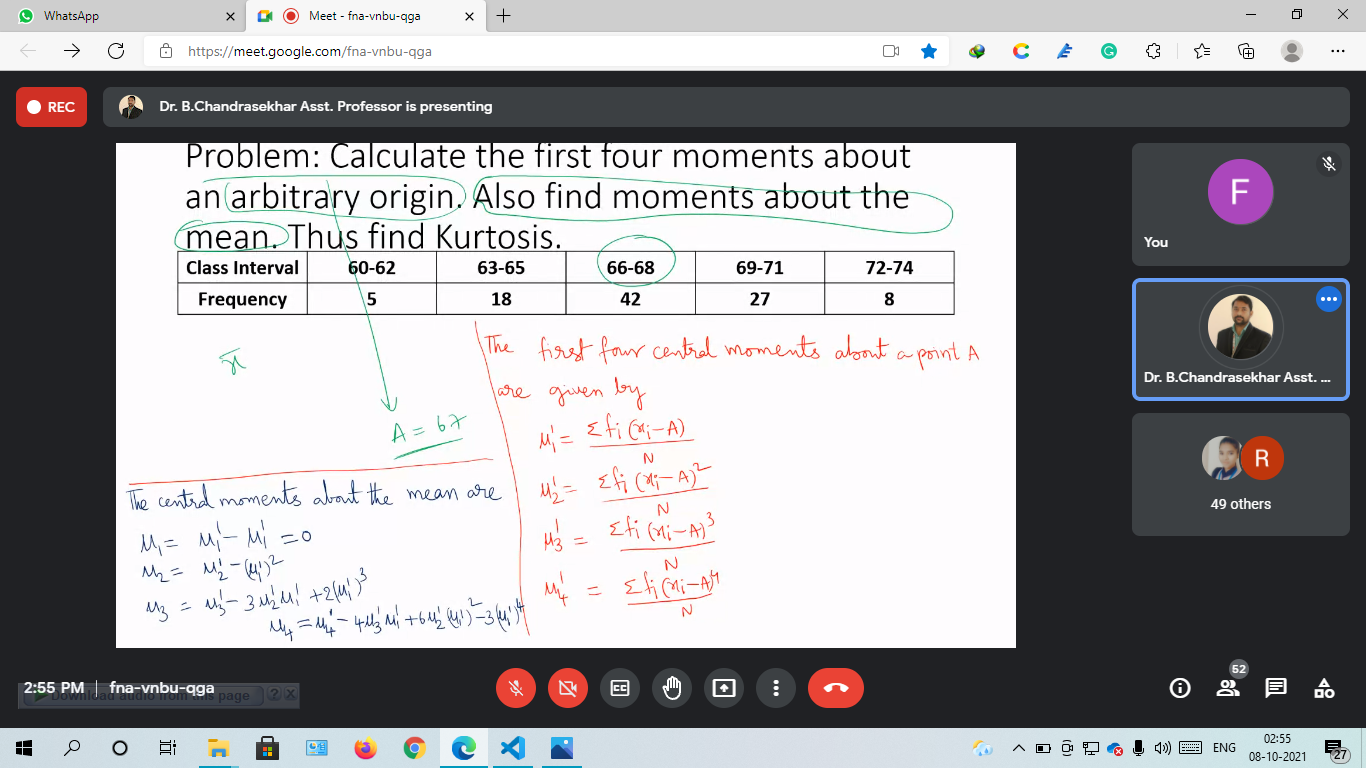 WhatsApp
Meet - fna-vnbu-qga
https://meet.google.com/fna-vnbu-qga
REC
Dr. B.Chandrasekhar Asst. Professor is presenting
Problem: Calculate the first four moments about
an arbitrary origin. Also find moments about the
mean. Thus find Kurtosis.
Class Interval 60-62 63-65 66-68 69-71 72-74
Frequency 5 18 42 27 8
x̄
A = 67
The first four central moments about a point A
are given by
μ₁' = Σfi (xi – A) / N
μ₂' = Σfi (xi – A)² / N
μ₃' = Σfi (xi – A)³ / N
μ₄' = Σfi (xi – A)⁴ / N
The central moments about the mean are
μ₁ = μ₁' – μ₁' = 0
μ₂ = μ₂' – (μ₁')²
μ₃ = μ₃' – 3μ₂'μ₁' + 2(μ₁')³
μ₄ = μ₄' – 4μ₃'μ₁' + 6μ₂'(μ₁')² – 3(μ₁')⁴
F
You
Dr. B.Chandrasekhar Asst. ...
R
49 others
2:55 PM | fna-vnbu-qga
Download audio from this page ? X
CC
52
ENG
02:55
08-10-2021
27